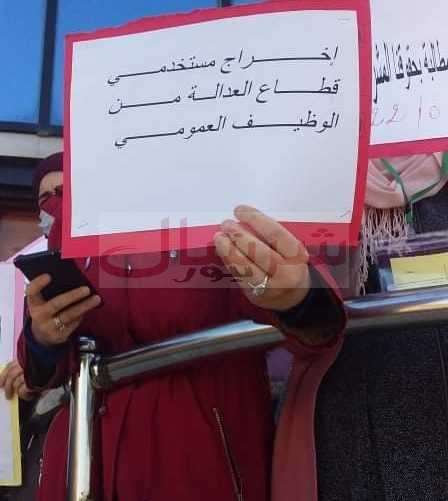 إخراج مستخدمي
قطاع العدالة من
الوظيف العمومي
بحقوقنا
شرشال
نيوز